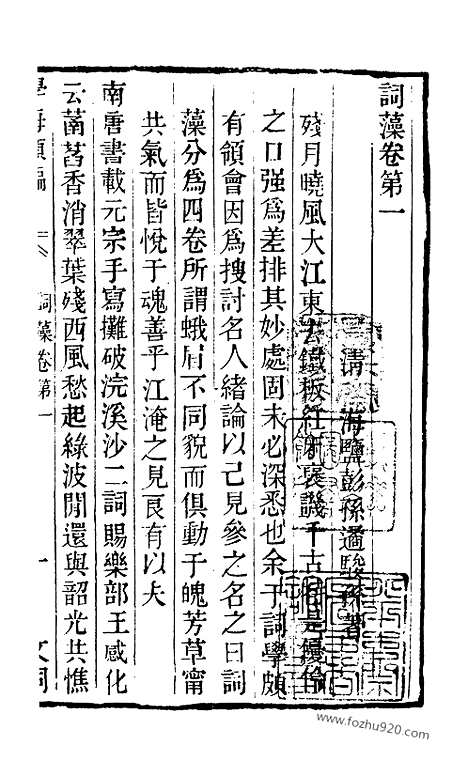 詞藻卷第一
清 海鹽彭孫遹駿孫著
殘月曉風大江東去鐵板紅牙褒譏千古
之口强爲差排其妙處固未必深悉也余于詞學頗
有領會因爲搜討名人緒論以己見參之名之曰詞
藻分爲四卷所謂蛾眉不同貌而俱動于魄芳草甯
共氣而皆悅于魂善乎江淹之見良有以夫
南唐書載元宗手寫攤破浣溪沙二詞賜樂部王感化
云菡萏香消翠葉殘西風愁起綠波閒還與韶光共憔
學海類編 詞藻卷第一 一 文詞
www.fozhu920.com